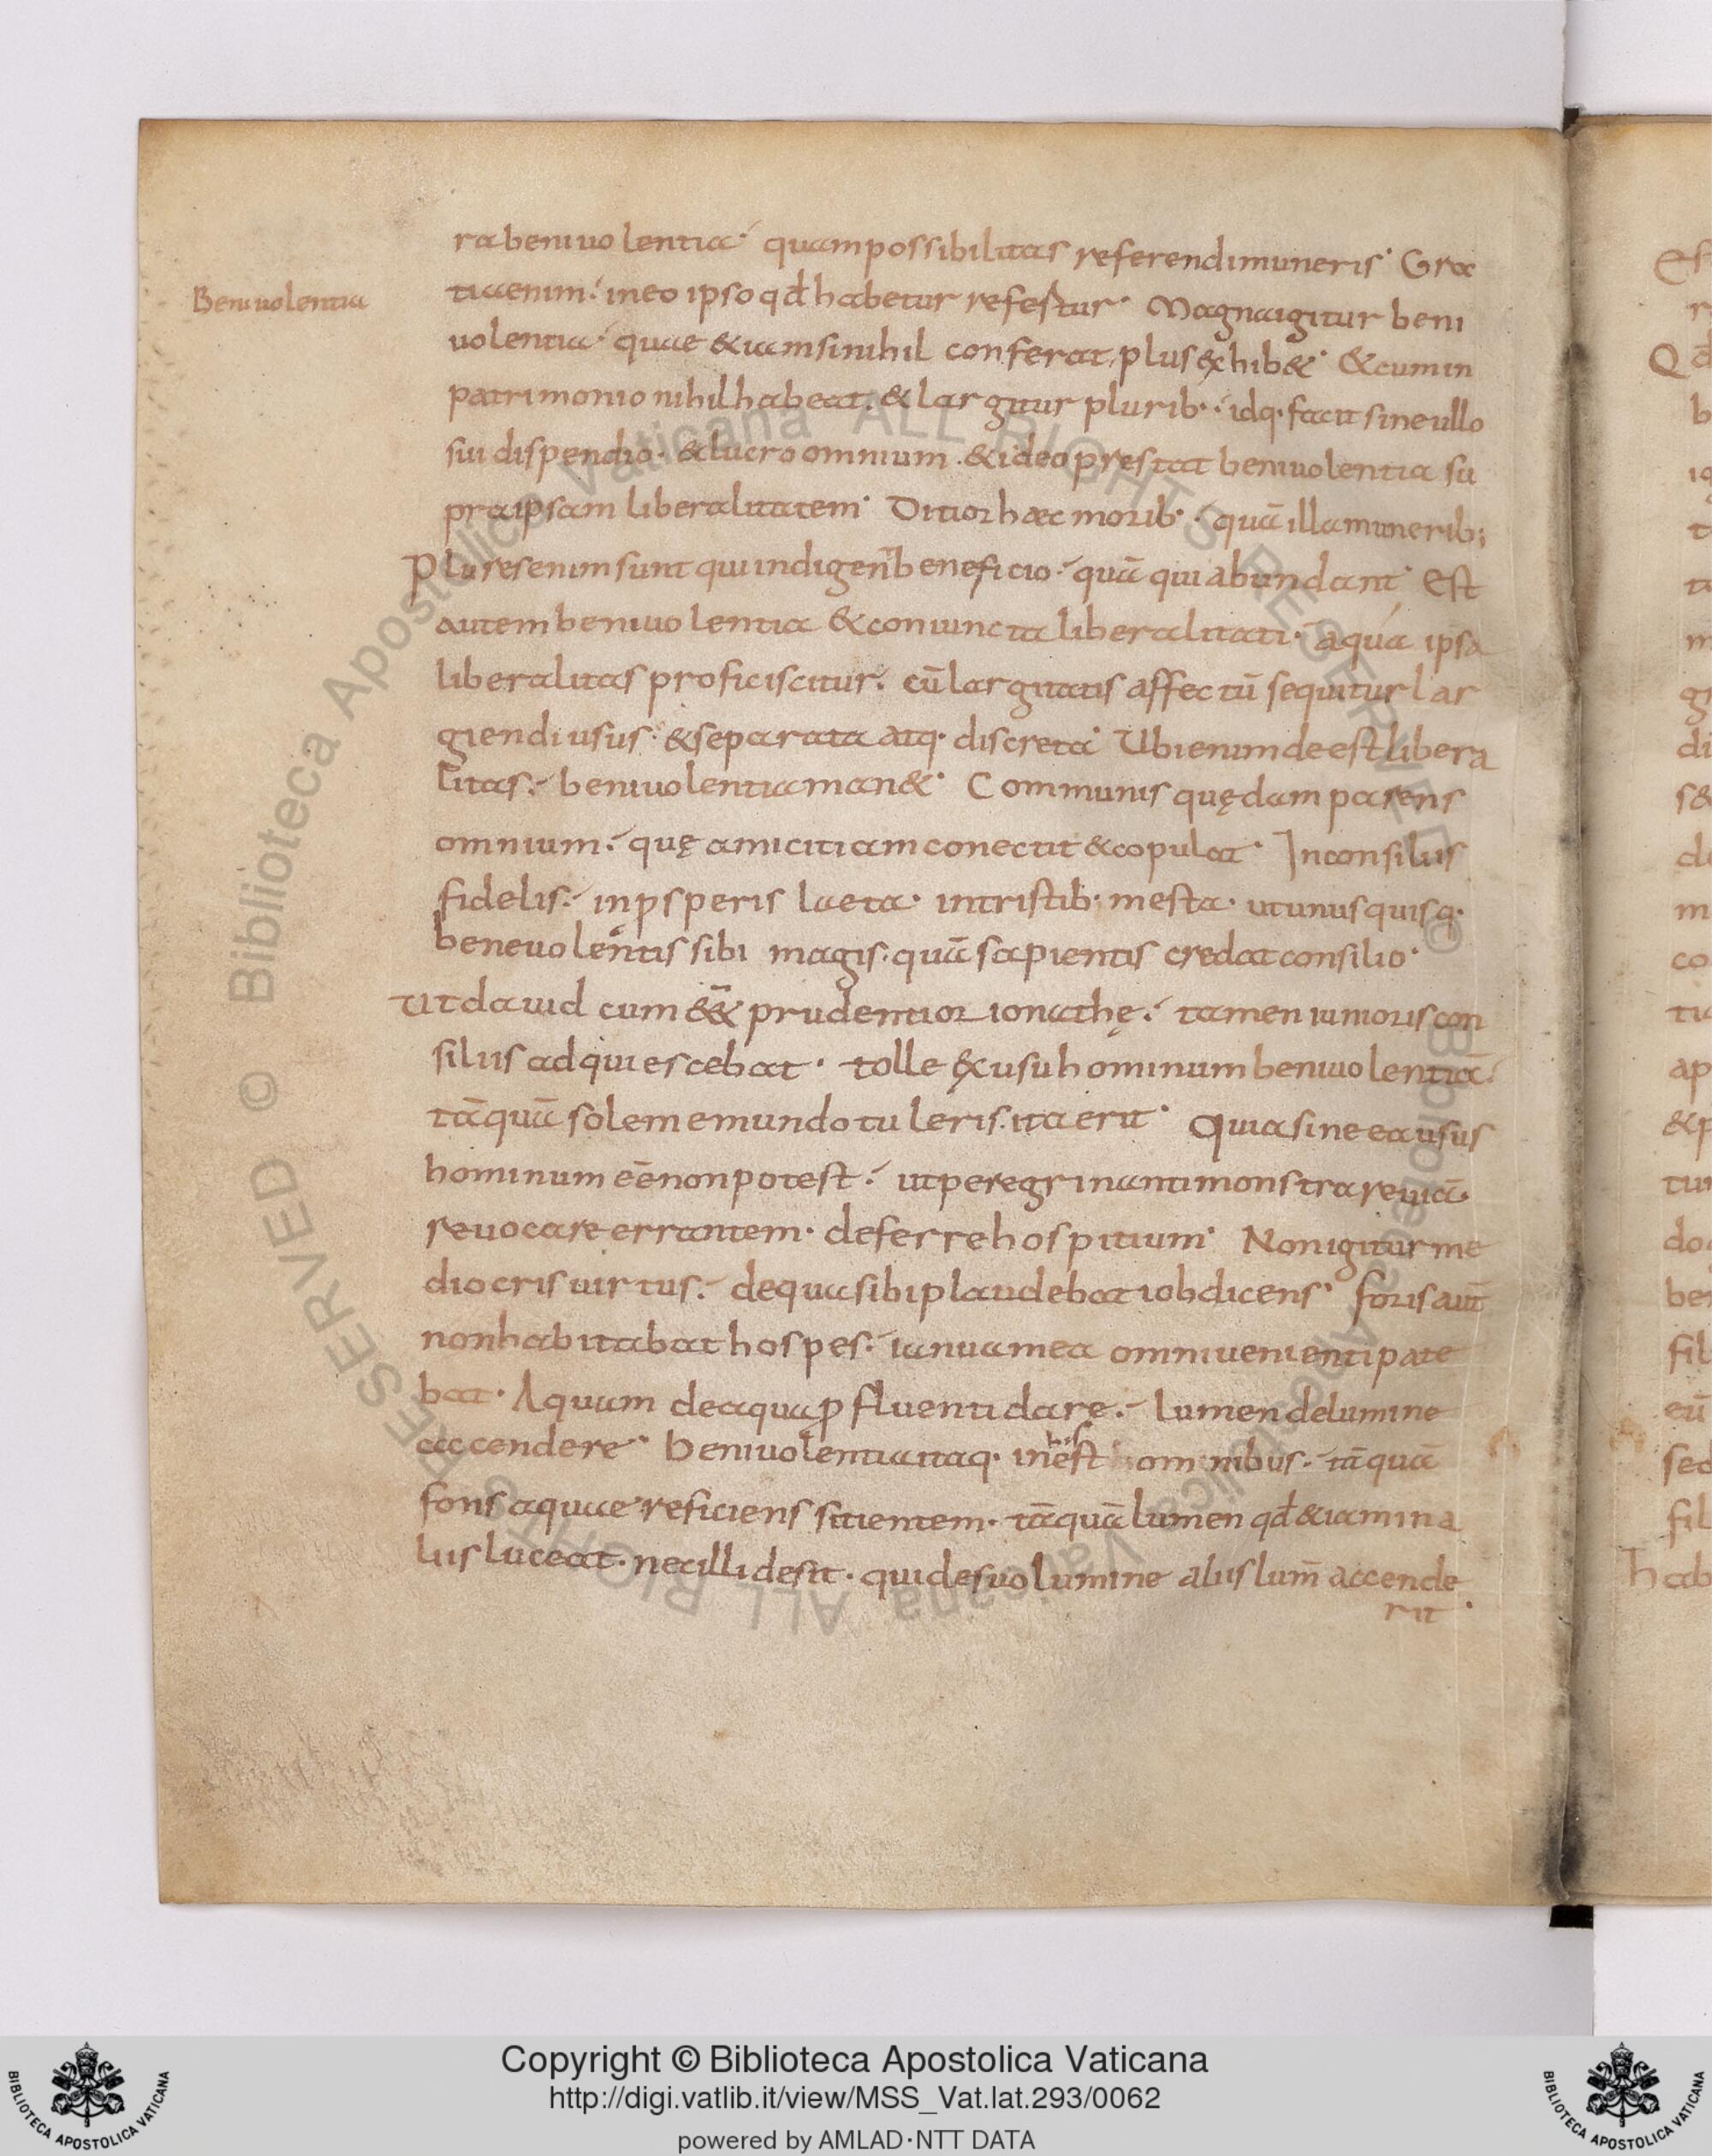 Beniuolentia
ra beniuolentia. quam possibilitas referendi muneris. Gra
tia enim. in eo ipso qđ habetur refertur. Magna igitur beni
uolentia. quae &iam si nihil conferat, plus exhib&. & cum in
patrimonio nihil habeat. & largitur plurib·. idq· facit sine ullo
sui dispendio. & lucro omnium. & ideo prestat beniuolentia su
pra ipsam liberalitatem. Ditior haec morib·. quā illa munerib;
Plures enim sunt qui indigent beneficio. quā qui abundant. Est
autem beniuolentia & coniuncta liberalitati. a qua ipsa
liberalitas proficiscitur. cū largitatis affectū sequitur lar
giendi usus. & separata atq· discreta. Ubi enim deest libera
litas. beniuolentia man&. Communis quędam parens
omnium. quę amicitiam conectit & copulat. In consiliis
fidelis. in ꝓsperis laeta. in tristib· mesta. ut unusquisq·
beneuolentis sibi magis. quā sapientis credat consilio.
Ut dauid cum ēē& prudentior ionathę. tamen iunioris con
siliis adquiescebat. tolle ex usu hominum beniuolentiā.
tāquā solem e mundo tuleris. ita erit. Quia sine ea usus
hominum eē non potest. ut peregrinanti monstrare uiā.
reuocare errantem. deferre hospitium. Non igitur me
diocris uirtus. de qua sibi plaudebat iob dicens. foris aut̄
non habitabat hospes. ianua mea omni uenienti pate
bat. Aquam de aqua ꝓfluenti dare. lumen de lumine
accendere. beniuolentia itaq· inest hominibus. tāquā
fons aquae reficiens sitientem. tāquā lumen qđ &iam in a
liis luceat. nec illi desit. qui de suo lumine aliis lum̄ accende
rit.
Copyright © Biblioteca Apostolica Vaticana
http://digi.vatlib.it/view/MSS_Vat.lat.293/0062
powered by AMLAD·NTT DATA